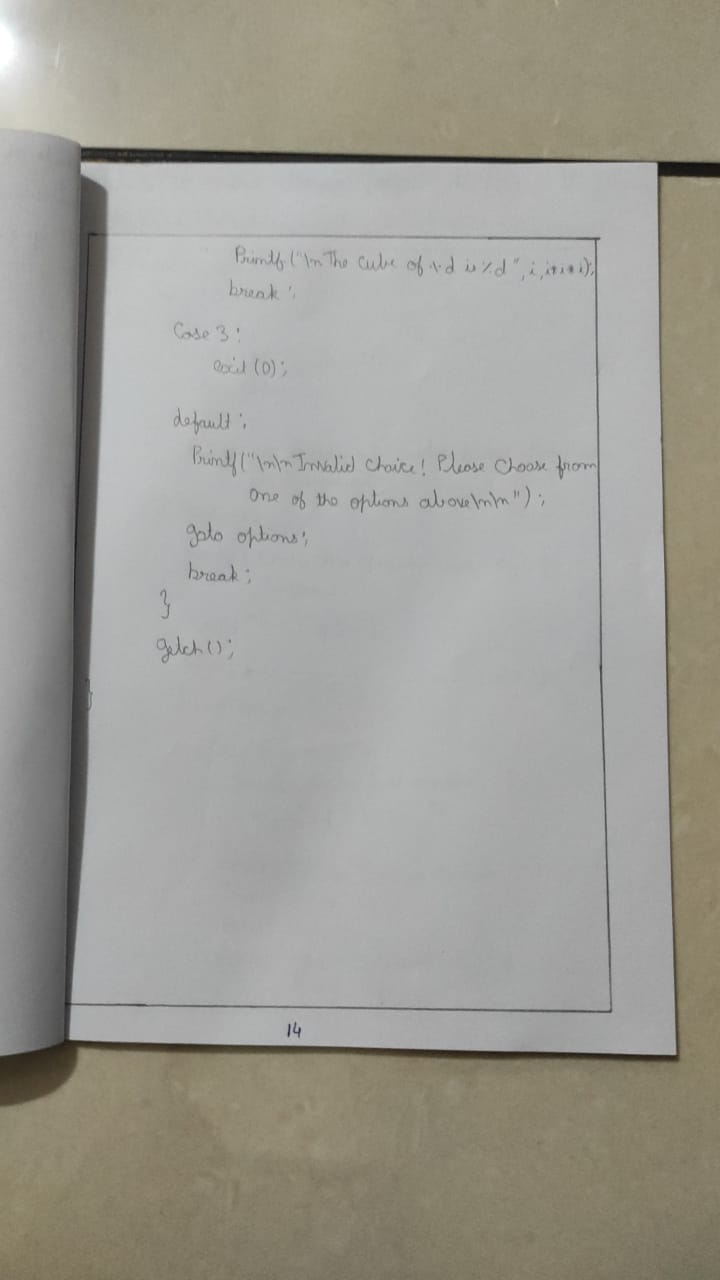 Printf("\n The Cube of %d is %d", i, i*i*i);
break;
Case 3:
exit(0);
default:
Printf("\n\n Invalid Choice! Please Choose from
one of the options above\n\n");
goto options;
break;
}
getch();
}
14